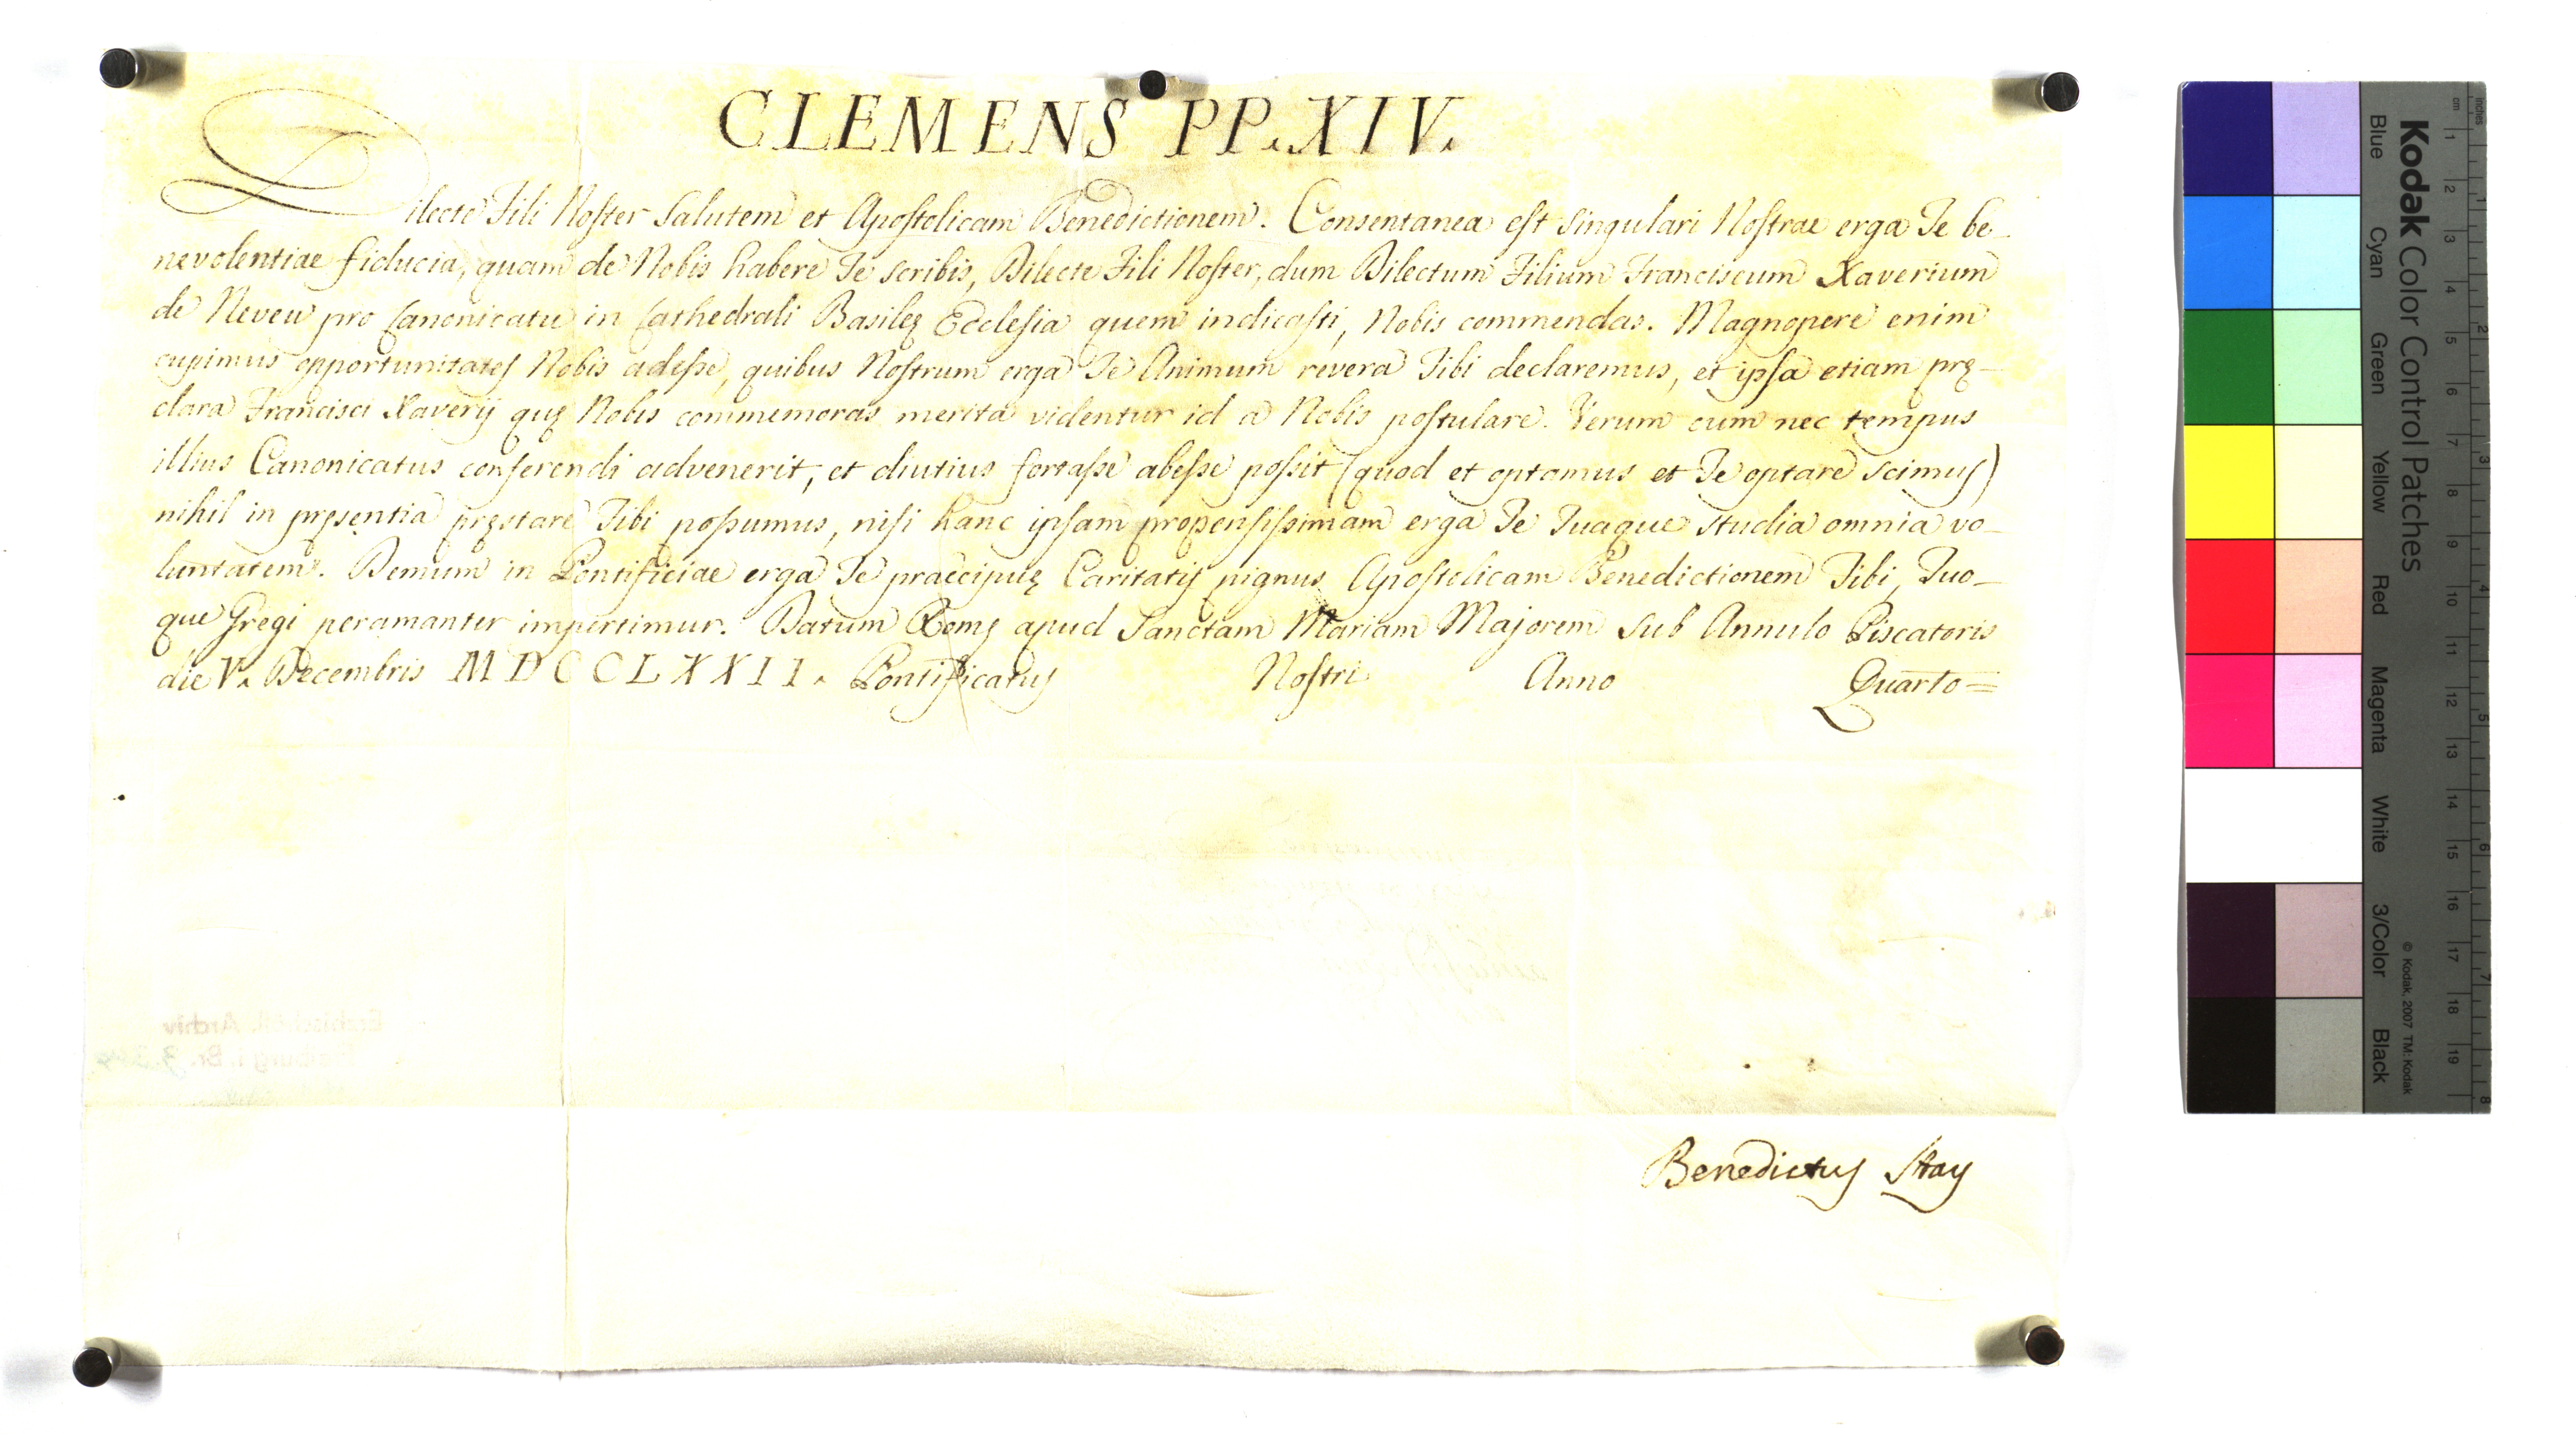 CLEMENS PP. XIV.
Dilecte Fili Noster Salutem et Apostolicam Benedictionem. Consentanea est singulari Nostrae erga Te be-
nevolentiae fiducia, quam de Nobis habere Te scribis, Dilecte Fili Noster, dum Dilectum Filium Franciscum Xaverium
de Neveu pro Canonicatu in Cathedrali Basileę Ecclesia quem indicasti, Nobis commendas. Magnopere enim
cupimus opportunitates Nobis adesse, quibus Nostrum erga Te Animum revera Tibi declaremus, et ipsa etiam prę-
clara Francisci Xaverij quę Nobis commemoras merita videntur id a Nobis postulare. Verum cum nec tempus
illius Canonicatus conferendi advenerit, et diutius fortasse abesse possit (quod et optamus et Te optare scimus)
nihil in pręsentia pręstare Tibi possumus, nisi hanc ipsam propensissimam erga Te Tuaque studia omnia vo-
luntatem. Demum in Pontificiae erga Te praecipuę Caritatis pignus Apostolicam Benedictionem Tibi, Tuo-
que Gregi peramanter impertimur. Datum Romę apud Sanctam Mariam Majorem sub Annulo Piscatoris
die V. Decembris MDCCLXXII. Pontificatus Nostri Anno Quarto=
Benedictus Stay
Erzbischöfl. Archiv
Freiburg i. Br.
Kodak Color Control Patches
Blue Cyan Green Yellow Red Magenta White 3/Color Black
© Kodak, 2007 TM: Kodak
inches 1 2 3 4 5 6 7 8
cm 1 2 3 4 5 6 7 8 9 10 11 12 13 14 15 16 17 18 19